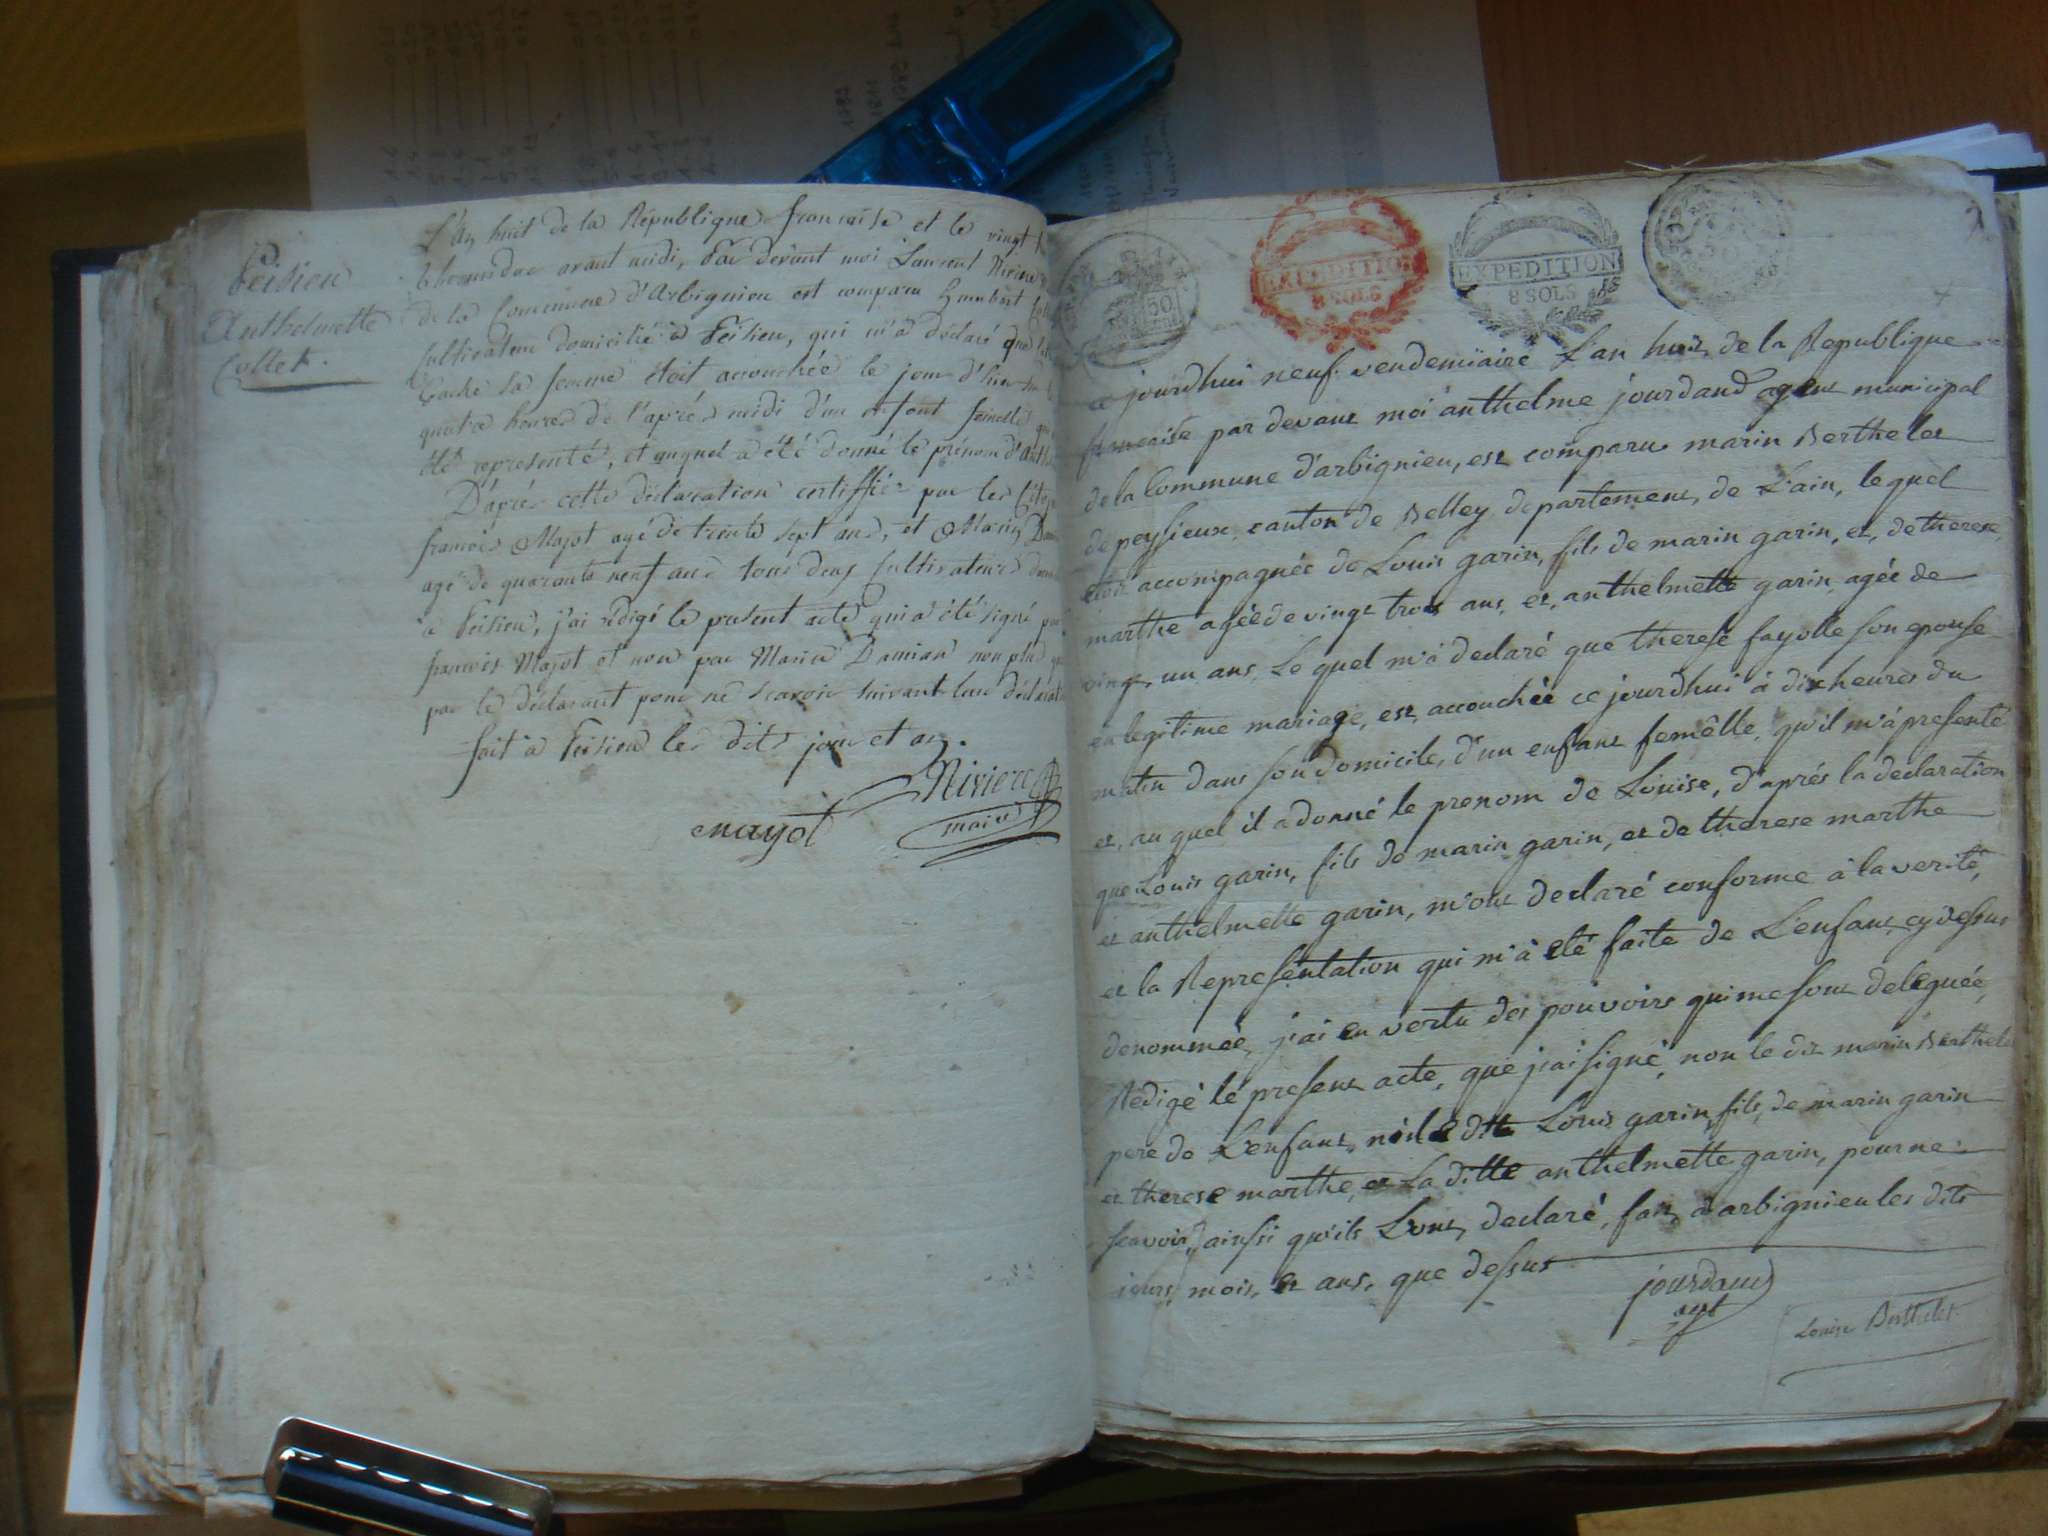 Peisieu
Anthelmette
Collet.
L'An huit de la République française et le vingt
thermidor avant midi, Par devant moi Laurent Riviere
de la Commune d'Arbignieu est comparu humbert
Cultivateur domicilié à Peisieu, qui m'a déclaré que
sa femme étoit accouchée le jour d'hier
quatre heures de l'après midi d'un enfant femelle qui
été representé, et auquel a été donné le prénom d'
D'après cette déclaration certiffiée par les
françois Majot agé de trente sept ans, et Marin
agé de quarante neuf ans tous deux Cultivateurs
à Peisieu, j'ai rédigé le present acte qui a été signé par
françois Majot et non par Marin Damian non plus que
par le déclarant pour ne scavoir suivant leur déclarat
fait à Peisieu les dits jour et an.
Riviere
majot
maire
50
EXPEDITION
8 SOLS
EXPEDITION
8 SOLS
ce jourdhui neuf vendemiaire L'an huit de la Republique
francaise par devant moi anthelme jourdand agent municipal
de la Commune d'arbignieu, est comparu marin Berthelet
de peysieux, canton de Belley departement de L'ain, lequel
etoit accompagnée de Louis garin, fils de marin garin, et, de therese
marthe agée de vingt trois ans, et, anthelmette garin agée de
vingt, un ans, Le quel m'à declaré que therese fayolle son epouse
en legitime mariage, est accouchée ce jourdhui à dix heures du
matin dans son domicile, d'un enfant femêlle, qu'il m'à presenté
et, au quel il a donné le prenom de Louise, d'aprés la declaration
que Louis garin, fils de marin garin, et de therese marthe
et anthelmette garin, m'ont declaré conforme à la verité,
et la Representation qui m'à eté faite de L'enfant cy dessus
denommée, j'ai en vertu des pouvoirs qui me sont deleguée,
Rédigé lé present acte, que j'ai signé, non le dit marin Berthelet
pere de L'enfant, ni le dit Louis garin fils, de marin garin
et therese marthe, et La ditte anthelmette garin, pour ne
scavoir, ainsi qu'ils L'ont declaré, fait à arbignieu les dits
jours, mois, et ans, que dessus
jourdand
agt
Louise Berthelet